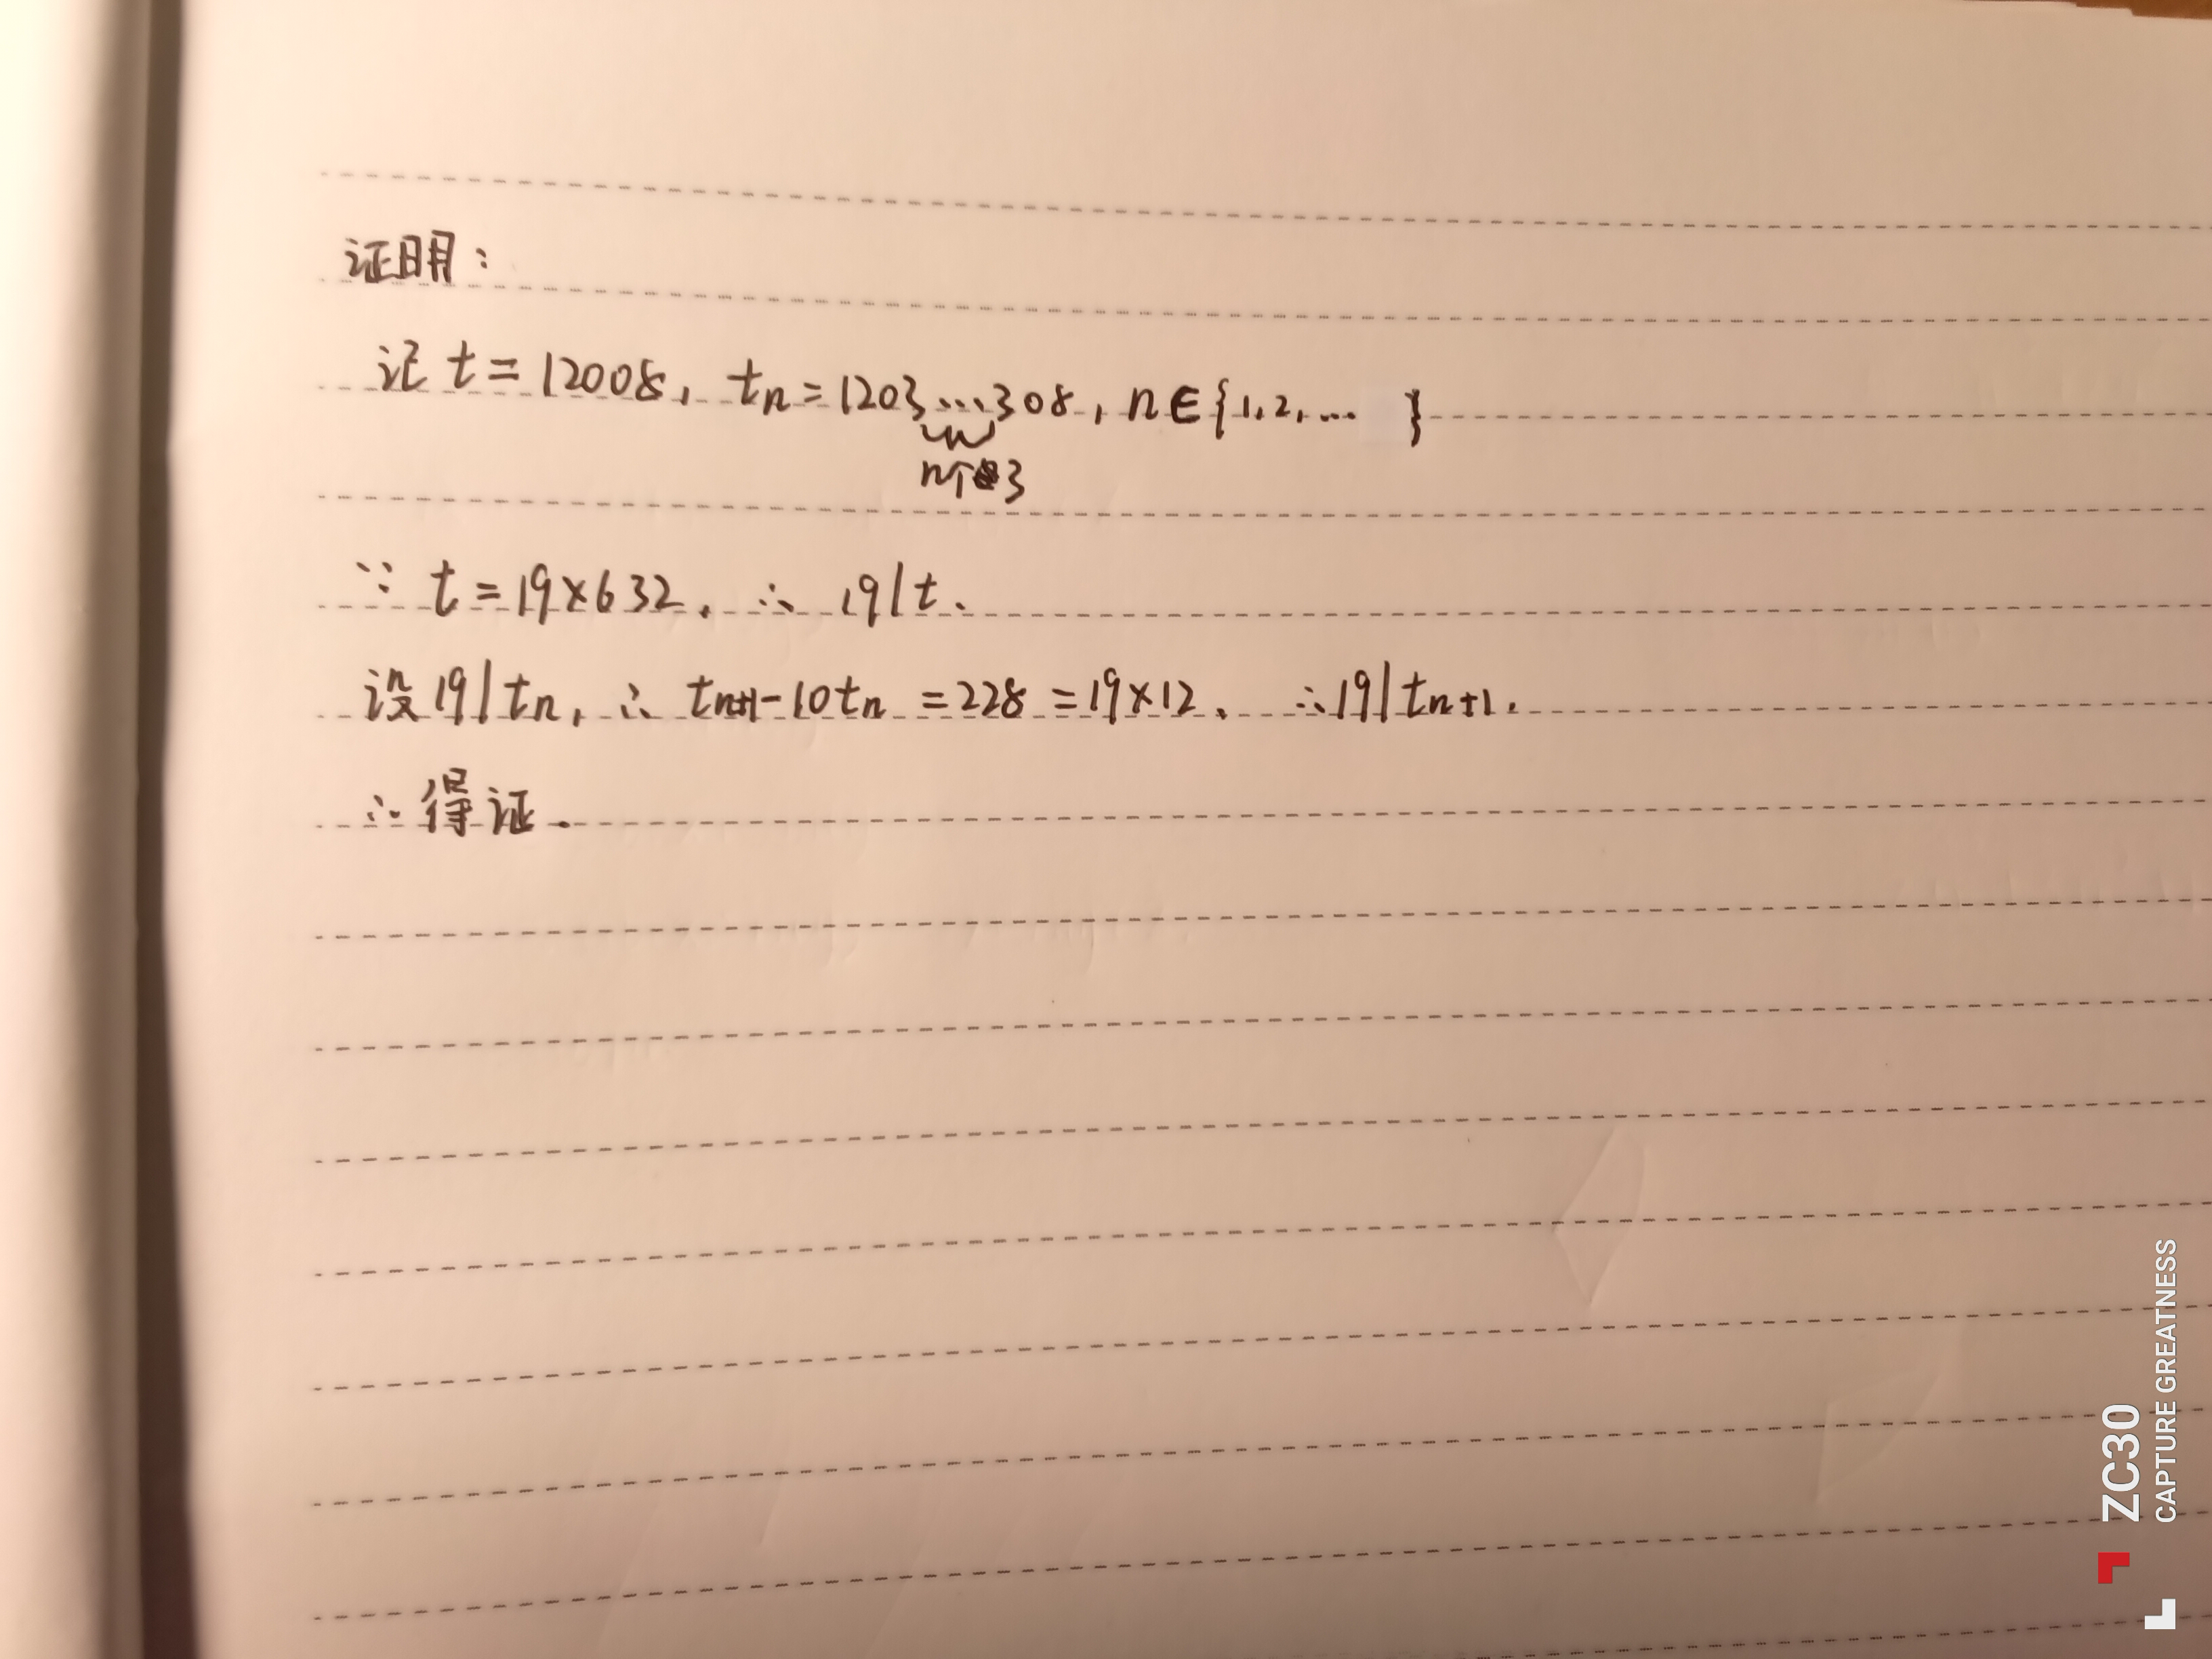 证明：
记 t = 12008, tn = 1203…308, n∈{1,2,… }
n个3
∵ t = 19×632. ∴ 19|t.
设19|tn, ∴ tn+1-10tn = 228 = 19×12. ∴19|tn+1.
∴得证.
ZC30
CAPTURE GREATNESS